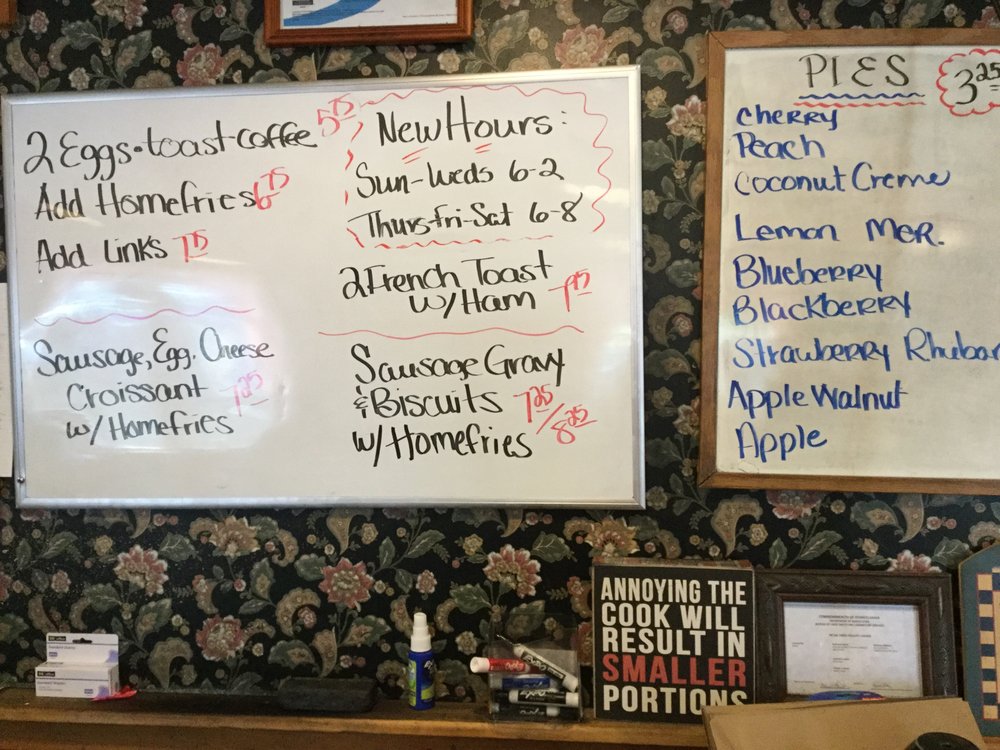 2 Eggs • toast • coffee 5 75
Add Homefries 6 75
Add Links 7 75
Sausage, Egg, Cheese
Croissant 7 25
w/ Homefries
New Hours:
Sun-Weds 6-2
Thurs-Fri-Sat 6-8
2 French Toast
w/ Ham 7 95
Sausage Gravy
& Biscuits 7 25 / 8 25
w/ Homefries
PIES 3 25
Cherry
Peach
Coconut Creme
Lemon Mer.
Blueberry
Blackberry
Strawberry Rhubar
Apple Walnut
Apple
ANNOYING THE
COOK WILL
RESULT IN
SMALLER
PORTIONS
COMMONWEALTH OF PENNSYLVANIA
expo